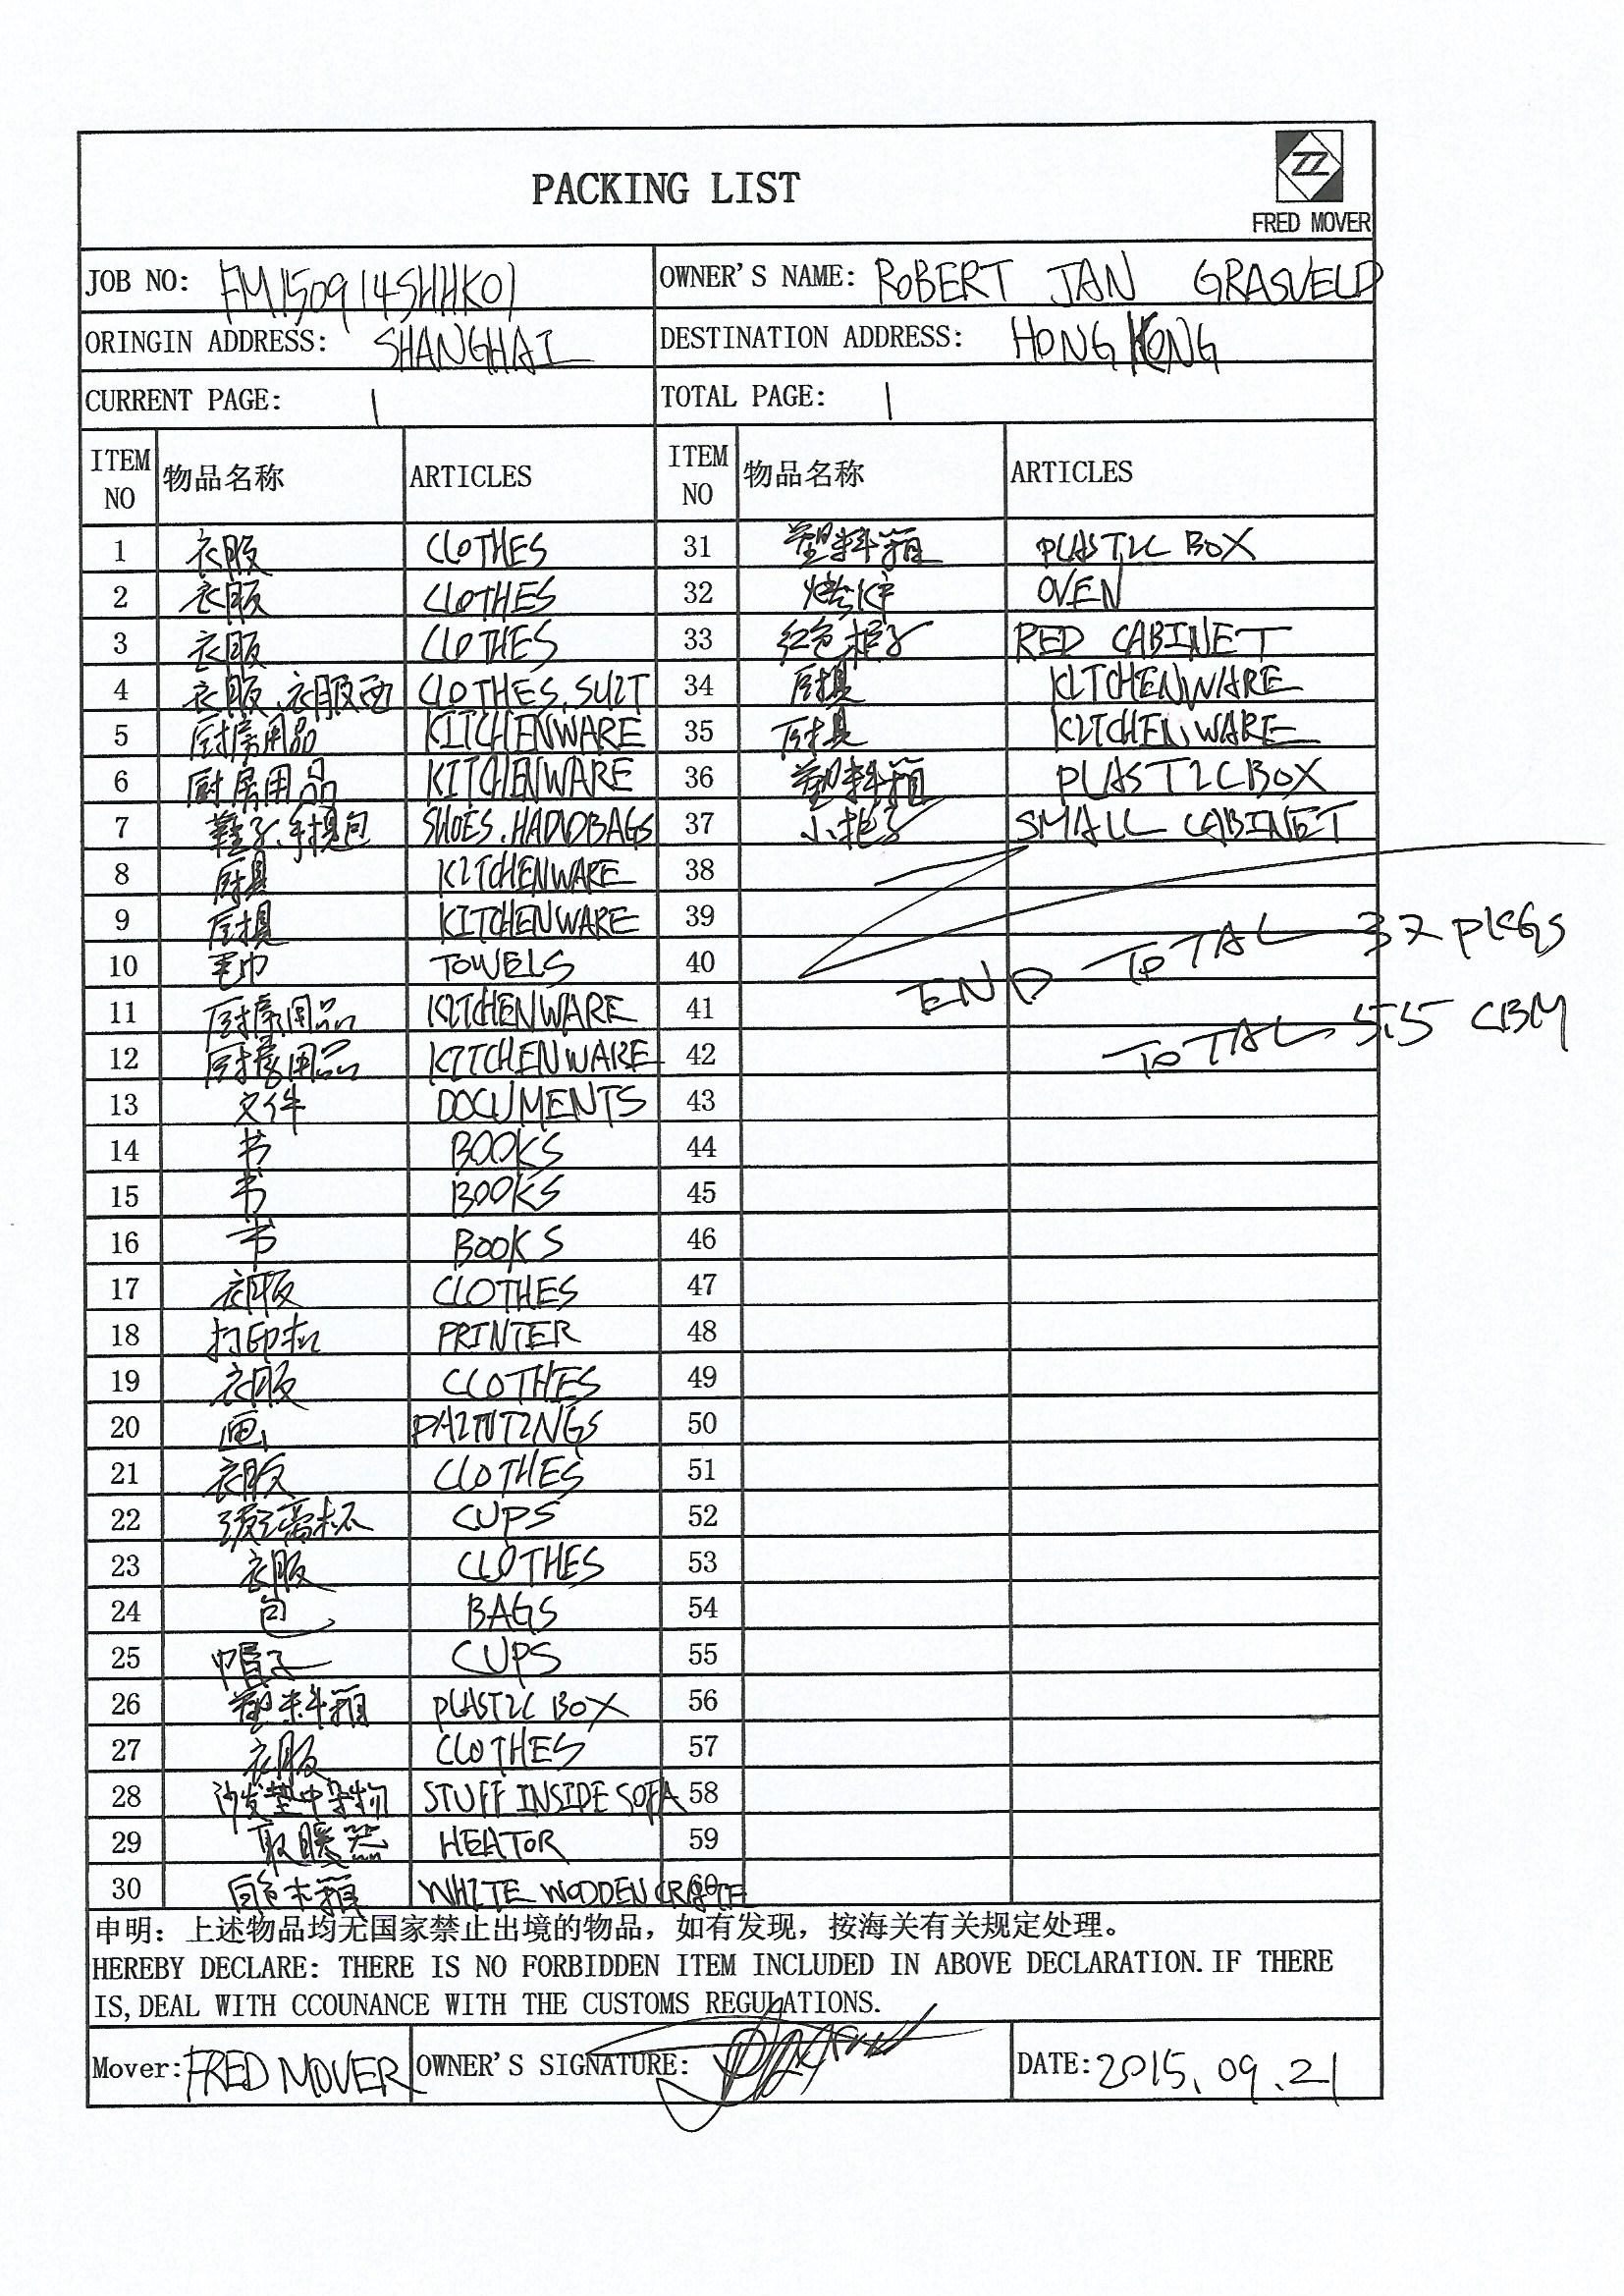 PACKING LIST
FRED MOVER
JOB NO: FM150914SHHK01 OWNER'S NAME: ROBERT JAN GRASVELD
ORINGIN ADDRESS: SHANGHAI DESTINATION ADDRESS: HONG KONG
CURRENT PAGE: 1 TOTAL PAGE: 1
ITEM NO 物品名称 ARTICLES ITEM NO 物品名称 ARTICLES
1 衣服 CLOTHES 31 塑料箱 PLASTIC BOX
2 衣服 CLOTHES 32 烤炉 OVEN
3 衣服 CLOTHES 33 红色柜子 RED CABINET
4 衣服、衣服西 CLOTHES.SUIT 34 厨具 KITCHENWARE
5 厨房用品 KITCHENWARE 35 厨具 KITCHENWARE
6 厨房用品 KITCHENWARE 36 塑料箱 PLASTIC BOX
7 鞋子.手提包 SHOES.HADDBAGS 37 小柜子 SMALL CABINET
8 厨具 KITCHENWARE 38
9 厨具 KITCHENWARE 39 TOTAL 37 PKGS
10 毛巾 TOWELS 40 END
11 厨房用品 KITCHENWARE 41 TOTAL 5.5 CBM
12 厨房用品 KITCHENWARE 42
13 文件 DOCUMENTS 43
14 书 BOOKS 44
15 书 BOOKS 45
16 书 BOOKS 46
17 衣服 CLOTHES 47
18 打印机 PRINTER 48
19 衣服 CLOTHES 49
20 画 PAINTINGS 50
21 衣服 CLOTHES 51
22 CUPS 52
23 衣服 CLOTHES 53
24 包 BAGS 54
25 帽子 CUPS 55
26 塑料箱 PLASTIC BOX 56
27 衣服 CLOTHES 57
28 沙发垫中杂物 STUFF INSIDE SOFA 58
29 取暖器 HEATOR 59
30 白色木箱 WHITE WOODEN CRATE 60
申明：上述物品均无国家禁止出境的物品，如有发现，按海关有关规定处理。
HEREBY DECLARE: THERE IS NO FORBIDDEN ITEM INCLUDED IN ABOVE DECLARATION. IF THERE
IS, DEAL WITH CCOUNANCE WITH THE CUSTOMS REGULATIONS.
Mover: FRED MOVER OWNER'S SIGNATURE: DATE: 2015.09.21